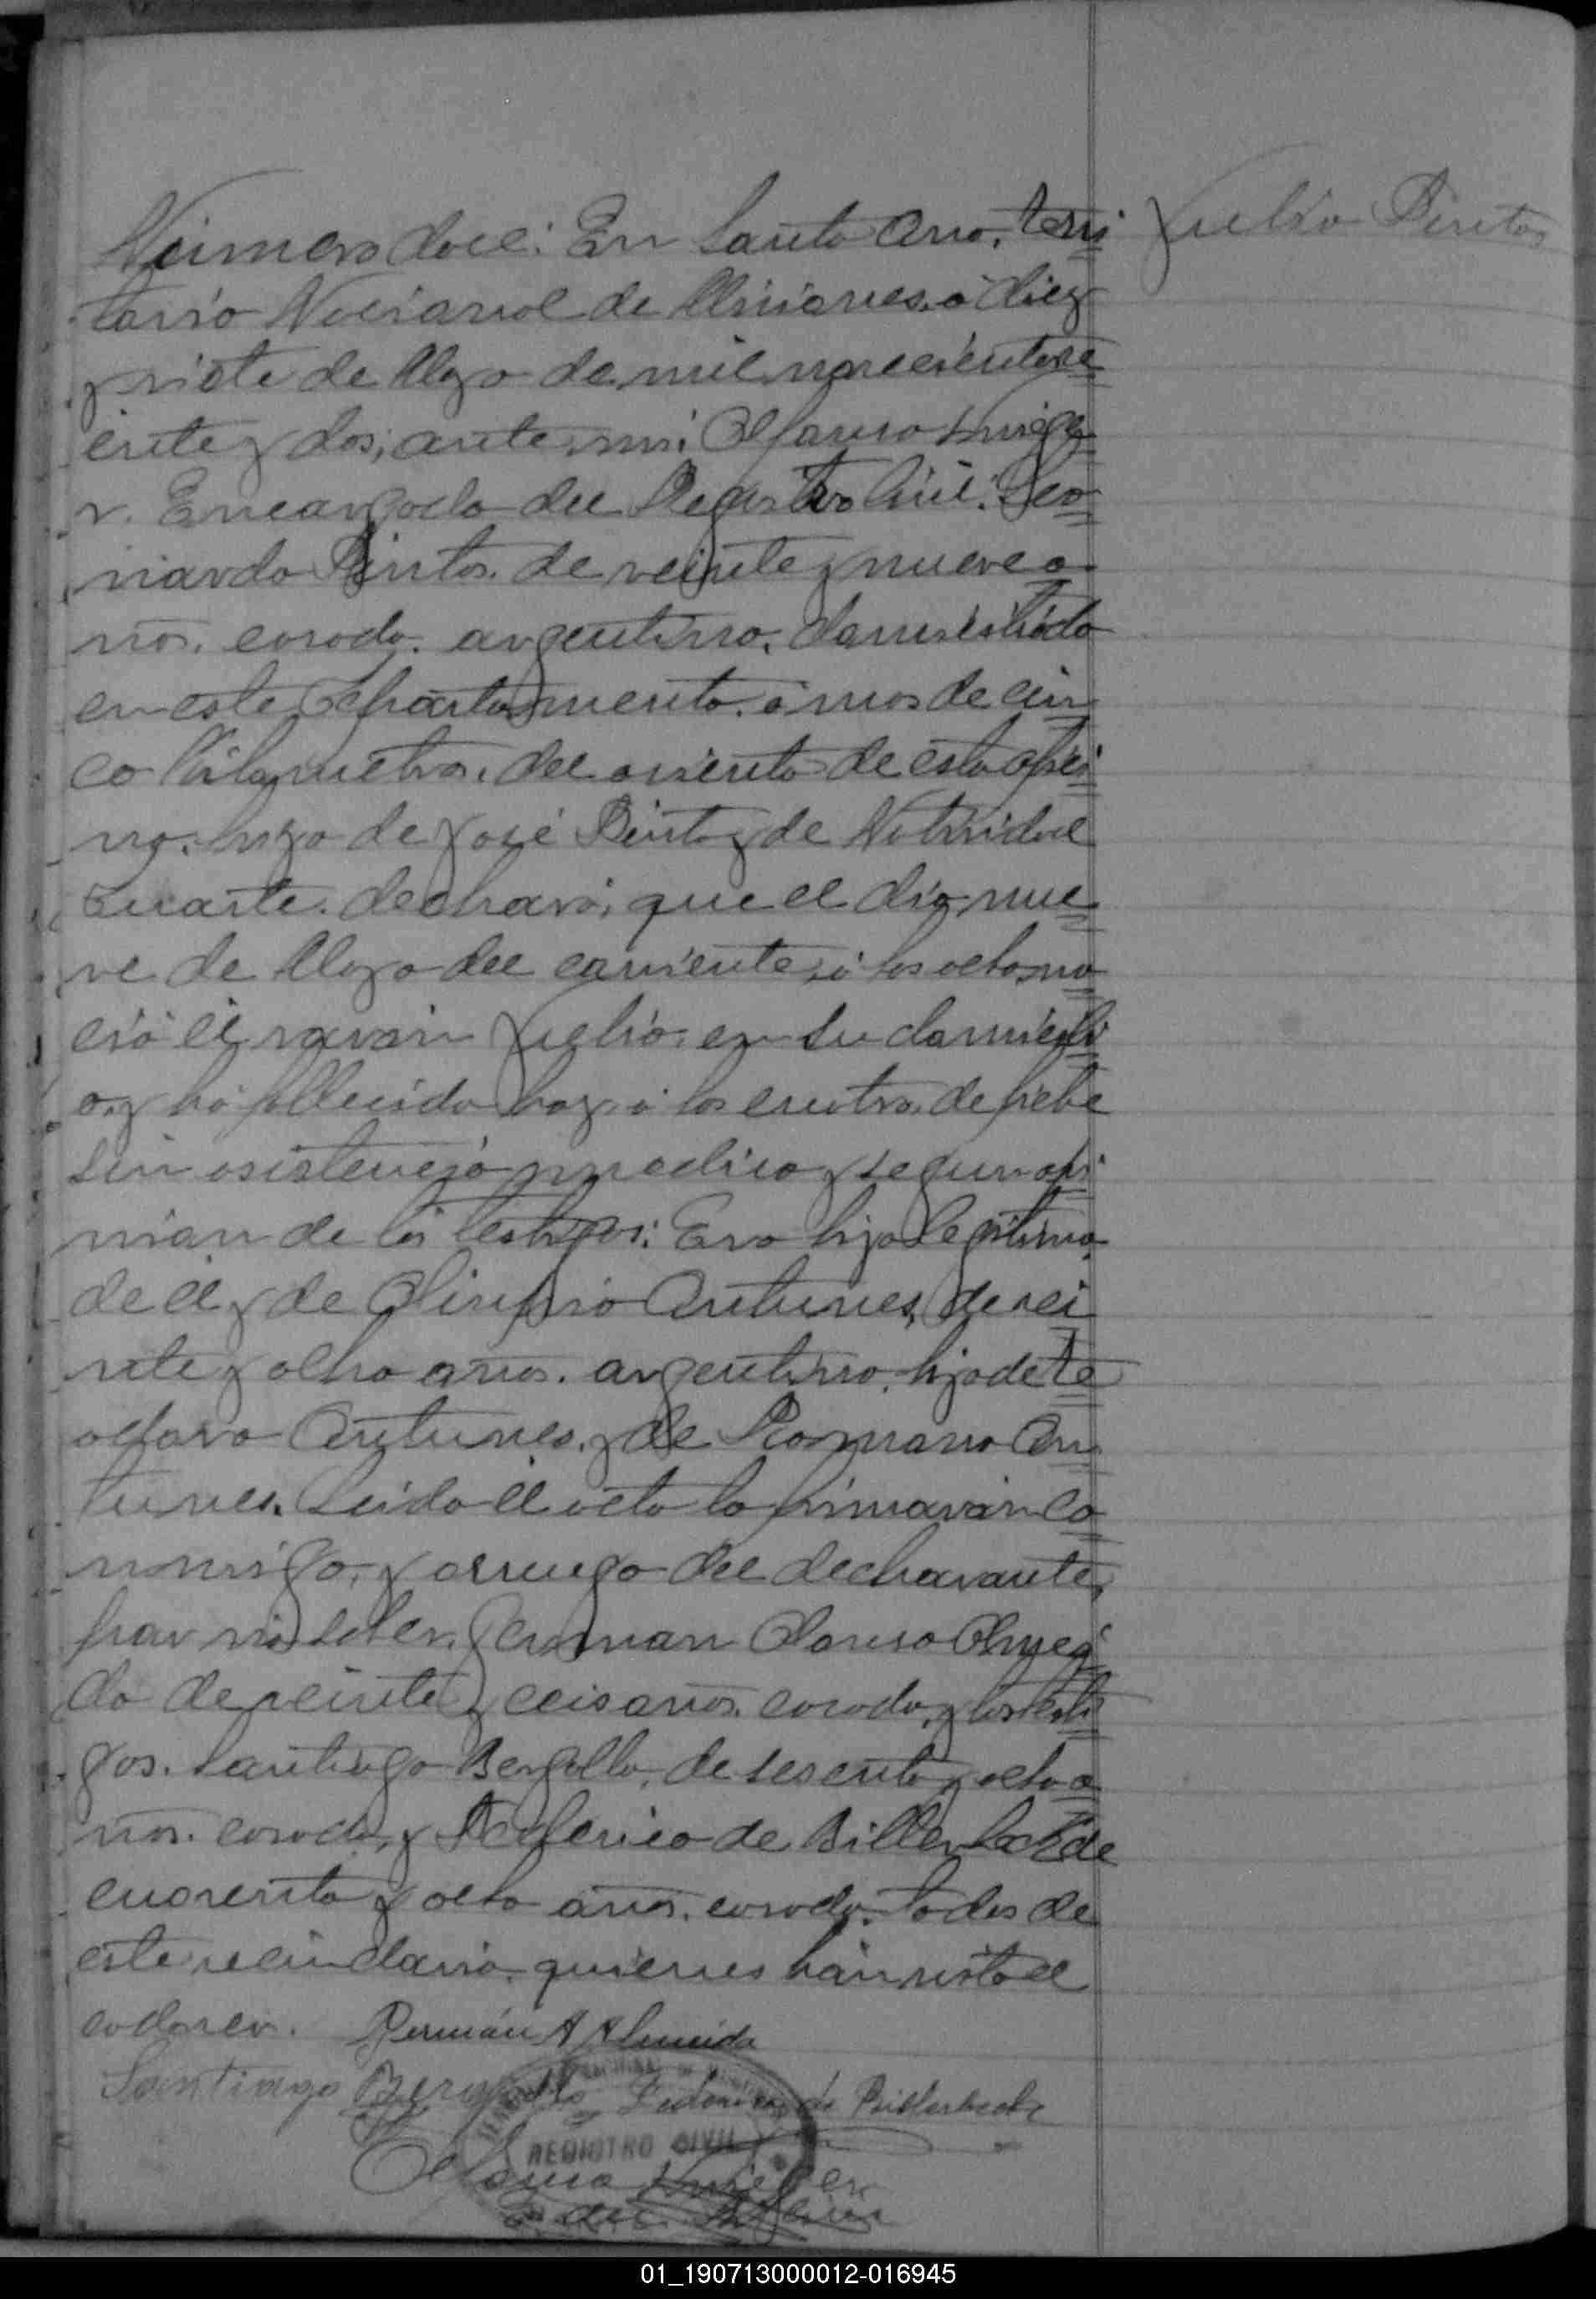 Número doce: En Santa Ana, terri
torio Nacional de Misiones, á diez
y siete de Mayo de mil novecientos ve
inte y dos, ante mí Alfonso Krieger
r. Encargado del Registro Civil: Leo
nardo Pintos, de veinte y nueve a
ños, casado, argentino, domiciliado
en este departamento, á mas de cin
co kilometros, del asiento de esta ofici
na, hijo de José Pinto y de Natividad
Duarte, declaró: que el día nue
ve de Mayo del corriente, á las ocho, na
ció el varón Julio, en su domicili
o, y há fallecido hoy, á las cuatro, de fiebe
sin asistencia medica y segun opi
nion de los testigos: Era hijo legitimo
de él y de Olimpia Antunes, de vei
nte y ocho años, argentina, hija de Te
odoro Antunes, y de Romana An
tunes. Leida el acta la firmarón co
nmigo, y a ruego del declarante,
por no saber, German Alonso Almei
da de veinte y ceis años, casado, y los testi
gos, Santiago Bergallo, de sesenta y ocho a
ños, casado, y Federico de Billerbeck de
cuarenta y ocho años, casado, todos de
este vecindario, quienes hán visto el
cadaver. Germán A Almeida
Santiago Bergallo Federico de Billerbeck
REGISTRO CIVIL
Alfonso Krieger
E. del R. Civil
Julio Pintos
01_190713000012-016945